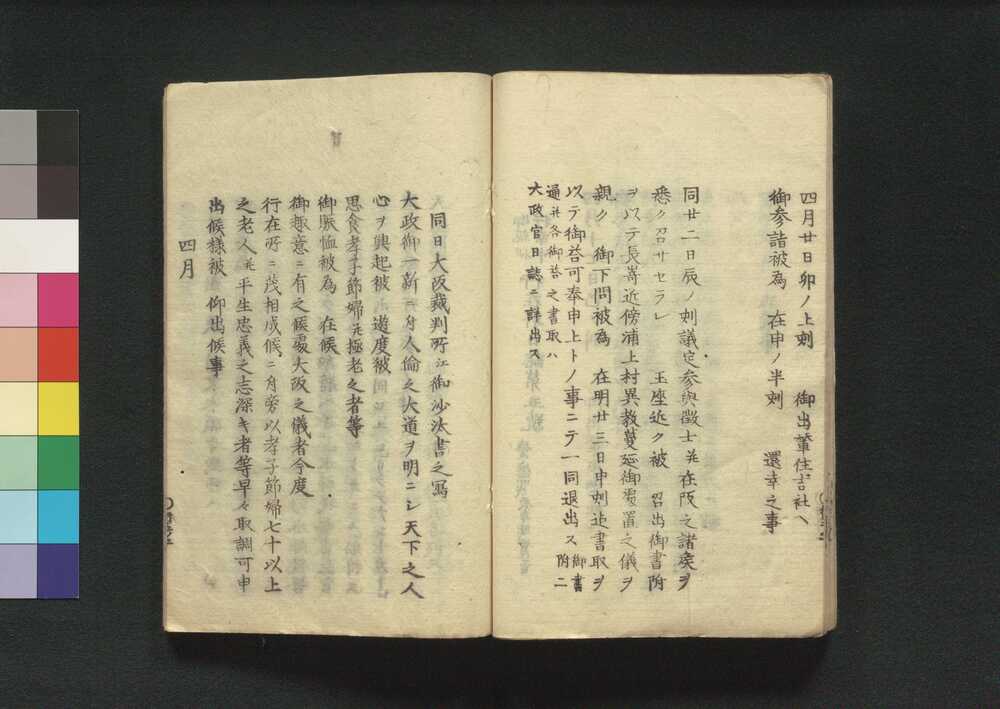 四月廿日卯ノ上刻　御出輦住吉社ヘ
御参詣被為　在申ノ半刻　還幸之事
同廿二日辰ノ刻議定参與徴士并在阪之諸矦ヲ
悉ク召サセラレ　玉座近ク被　召出御書附
ヲ以テ長嵜近傍浦上村異教蔓延御處置之儀ヲ
親ク　御下問被為　在明廿三日中刻迄書取ヲ
以テ御荅可奉申上トノ事ニテ一同退出ス御書附二
通并各御荅之書取ハ
大政官日誌ニ詳出ス
同日大阪裁判所江御沙汰書之寫
大政御一新ニ付人倫之大道ヲ明ニシ天下之人
心ヲ興起被　遊度被
思食孝子節婦并極老之者等
御賑恤被為　在候
御趣意ニ有之候處大阪之儀者今度
行在所ニ茂相成候ニ付旁以孝子節婦七十以上
之老人并平生忠義之志深キ者等早々取調可申
出候樣被　仰出候事
四月